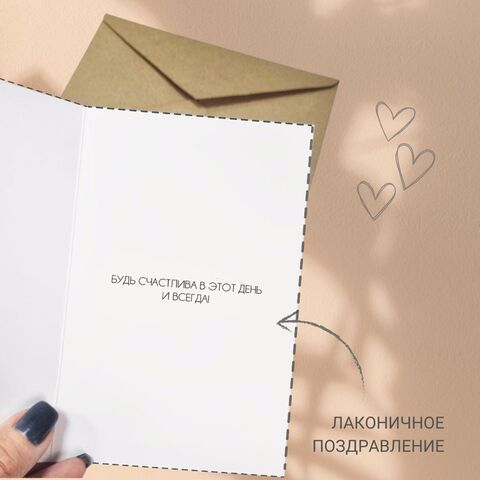 БУДЬ СЧАСТЛИВА В ЭТОТ ДЕНЬ
И ВСЕГДА!
ЛАКОНИЧНОЕ
ПОЗДРАВЛЕНИЕ